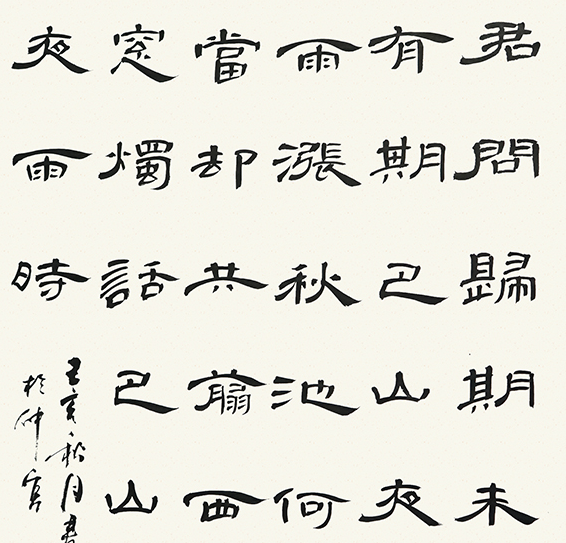 君問歸期未
有期巴山夜
雨漲秋池何
當却共翦西
窓燭話巴山
夜雨時
亥秋月書
於仲宮